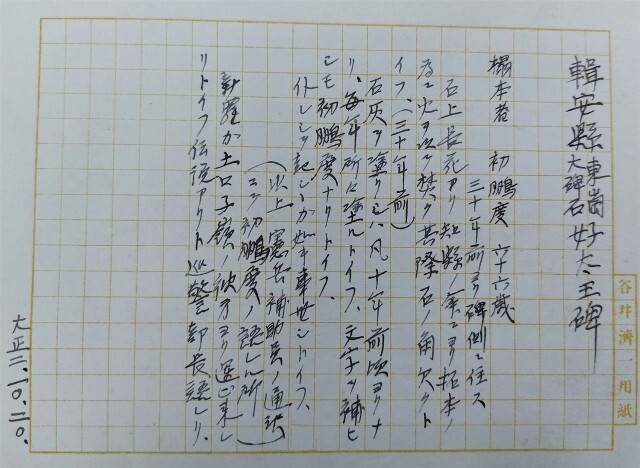 輯安縣東崗 好太王碑
大碑石
搨本者 初鵬度 六十六歳
三十年前ヨリ碑側ニ住ス
石上長苔アリ知縣ノ命ニヨリ拓本ノ
為ニ火ヲ以テ焚ク其際石ノ角欠クト
イフ、(三十年前)
石灰ヲ塗リシハ凡十年前頃ヨリナ
リ、毎年所々塗ルトイフ、文字ヲ補ヒ
シモ初鵬度ナリトイフ、
(以上 憲兵補助員ノ通訳
ニテ初鵬度ノ語レル所)
新羅カ土口子嶺ノ彼方ヨリ運ビ来レ
リトイフ伝説アリト巡警部長語レリ、
大正二.10.二〇.
谷井濟一用紙